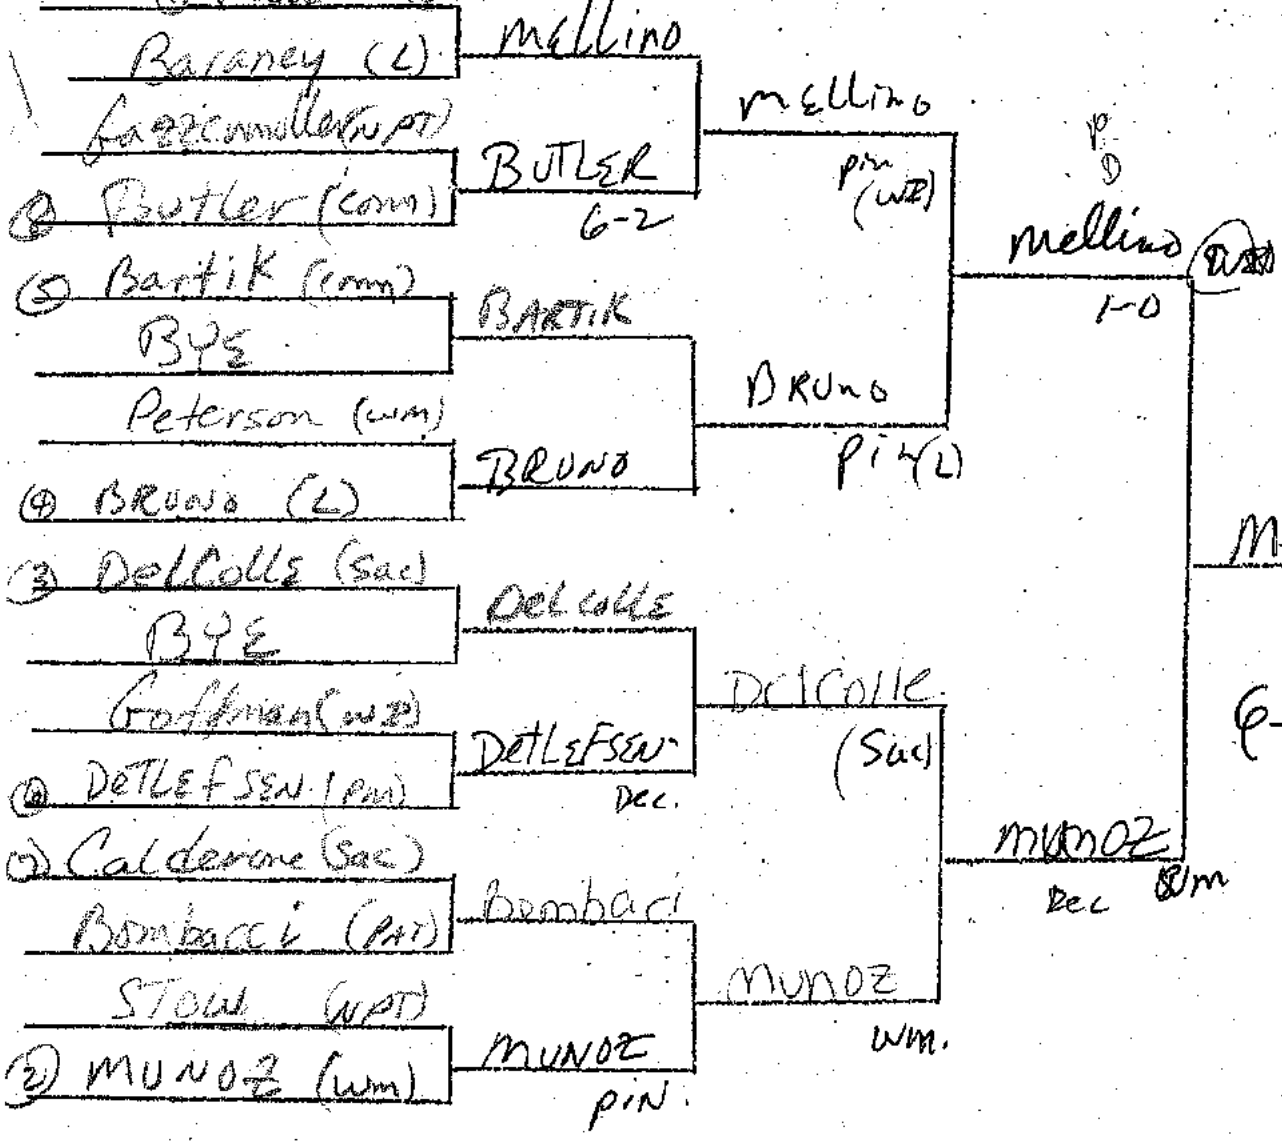 Baraney (L)
(NPT)
⑧ Butler (Comm)
⑤ Bartik (Comm)
BYE
Peterson (WM)
④ BRUNO (L)
③ DelCOLLE (Sac)
BYE
Goffman (WI)
⑥ DETLEFSEN (PM)
⑦ Calderone (Sac)
Bombacci (PAT)
STOW (NPT)
② MUNOZ (WM)
MELLINO
BUTLER
6-2
BARTIK
BRUNO
DELCOLLE
DETLEFSEN
Dec.
Bombaci
MUNOZ
PIN.
MELLINO
PIN
(WI)
BRUNO
PIN (L)
DelColle
(Sac)
MUNOZ
WM.
P
D
Mellino
1-0
MUNOZ
Dec WM
M
6-